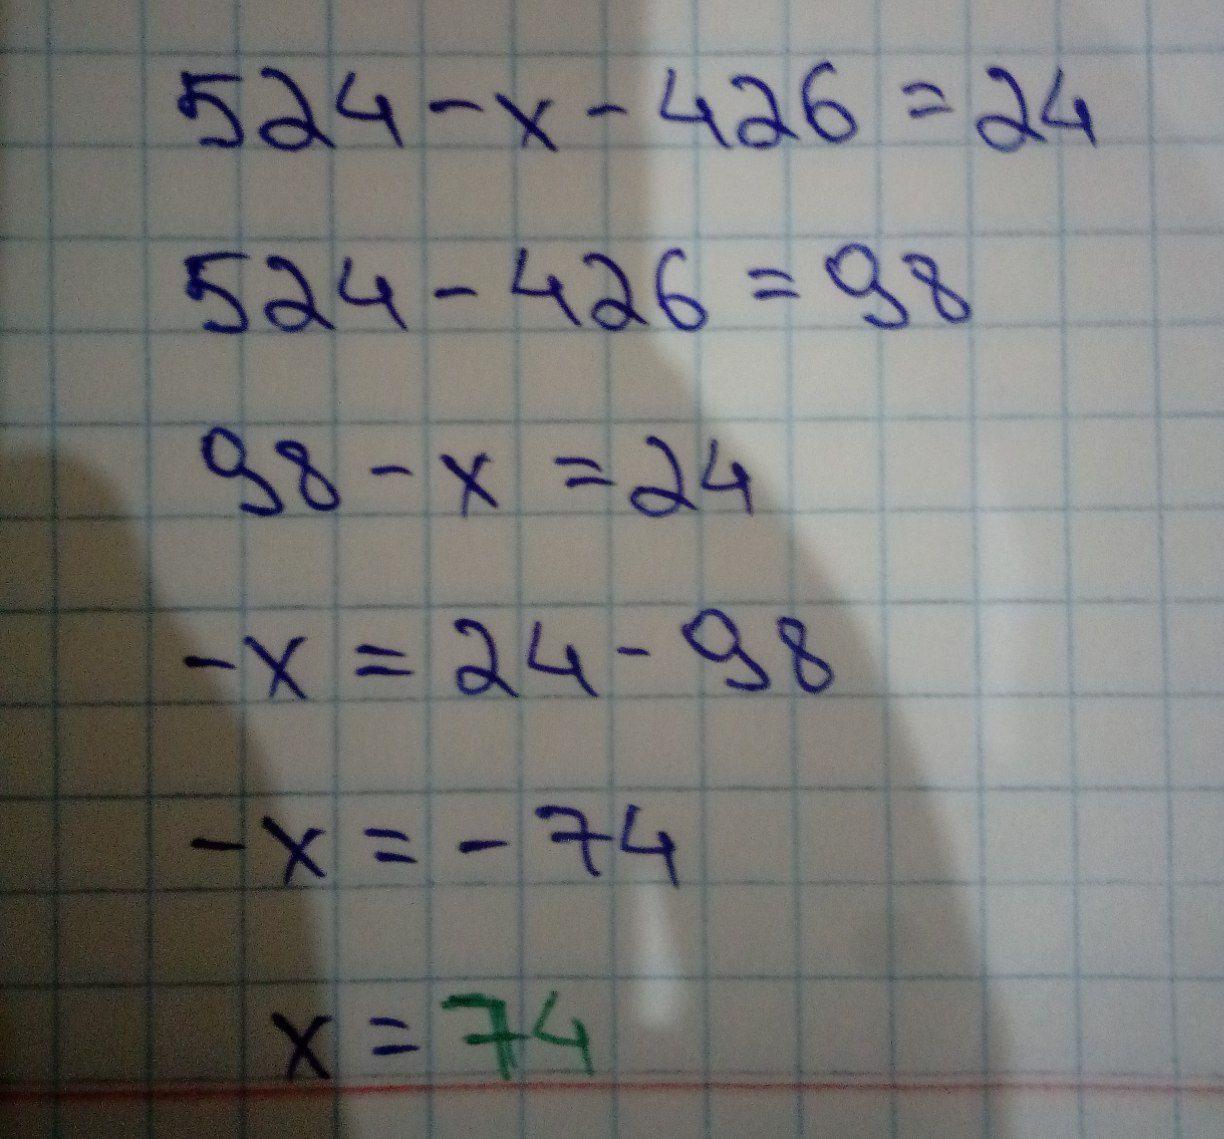 524 - x - 426 = 24
524 - 426 = 98
98 - x = 24
-x = 24 - 98
-x = - 74
x = 74